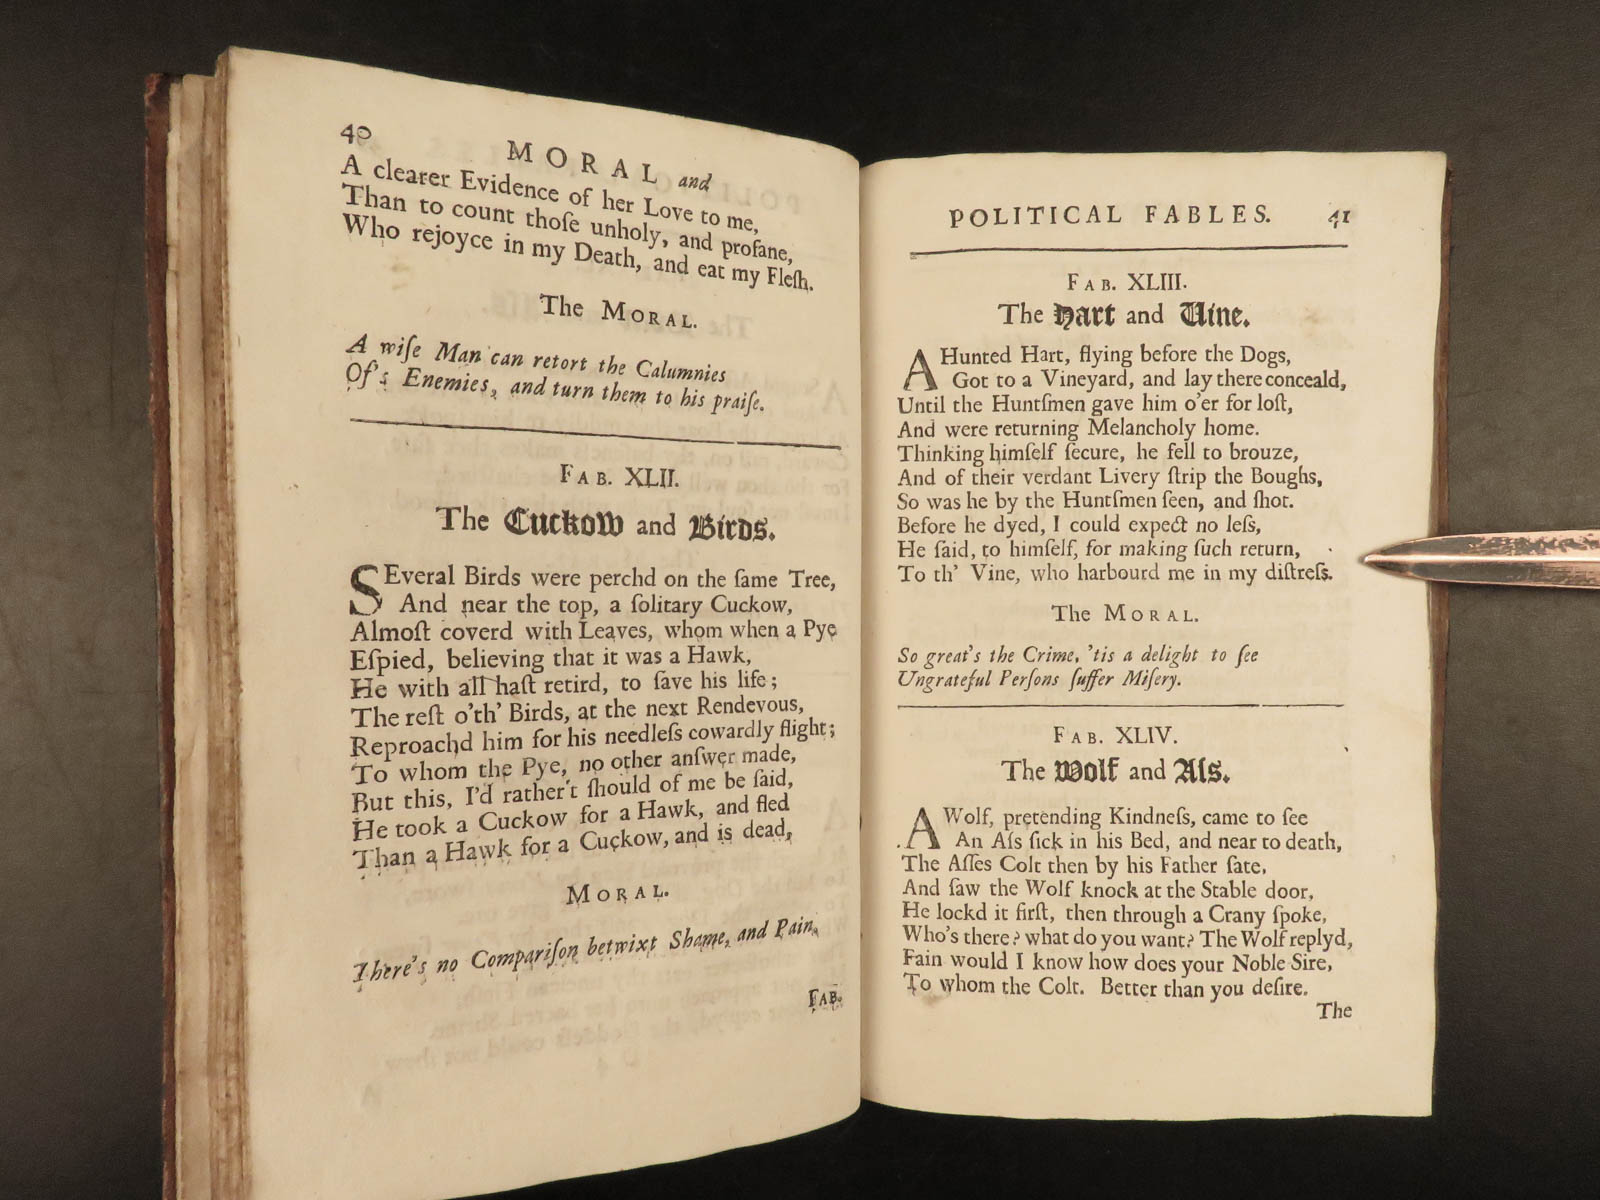 40
MORAL and
A clearer Evidence of her Love to me,
Than to count thoſe unholy, and profane,
Who rejoyce in my Death, and eat my Fleſh.
The MORAL.
A wiſe Man can retort the Calumnies
Of's Enemies, and turn them to his praiſe.
FAB. XLII.
The Cuckow and Birds.
SEveral Birds were perchd on the ſame Tree,
And near the top, a ſolitary Cuckow,
Almoſt coverd with Leaves, whom when a Pye
Eſpied, believing that it was a Hawk,
He with all haſt retird, to ſave his life;
The reſt o'th' Birds, at the next Rendevous,
Reproachd him for his needleſs cowardly flight;
To whom the Pye, no other anſwer made,
But this, I'd rather't ſhould of me be ſaid,
He took a Cuckow for a Hawk, and fled
Than a Hawk for a Cuckow, and is dead,
MORAL.
There's no Compariſon betwixt Shame, and Pain.
FAB.
POLITICAL FABLES. 41
FAB. XLIII.
The Hart and Vine.
A Hunted Hart, flying before the Dogs,
Got to a Vineyard, and lay there conceald,
Until the Huntſmen gave him o'er for loſt,
And were returning Melancholy home.
Thinking himſelf ſecure, he fell to brouze,
And of their verdant Livery ſtrip the Boughs,
So was he by the Huntſmen ſeen, and ſhot.
Before he dyed, I could expect no leſs,
He ſaid, to himſelf, for making ſuch return,
To th' Vine, who harbourd me in my diſtreſs.
The MORAL.
So great's the Crime, 'tis a delight to ſee
Ungrateful Perſons ſuffer Miſery.
FAB. XLIV.
The Wolf and Aſs.
A Wolf, pretending Kindneſs, came to ſee
An Aſs ſick in his Bed, and near to death,
The Aſſes Colt then by his Father ſate,
And ſaw the Wolf knock at the Stable door,
He lockd it firſt, then through a Crany ſpoke,
Who's there? what do you want? The Wolf replyd,
Fain would I know how does your Noble Sire,
To whom the Colt. Better than you deſire.
The